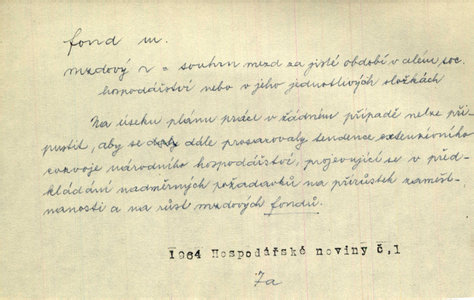 fond m.
mzdový ~ = souhrn mezd za jisté období v celém soc.
hospodářství nebo v jeho jednotlivých složkách
Na úseku plánu práce v žádném případě nelze při-
pustit, aby se dále prosazovaly tendence extenzivního
rozvoje národního hospodářství, projevující se v před-
kládání nadměrných požadavků na přírůstek zaměst-
nanosti a na růst mzdových fondů.
1964 Hospodářské noviny č,1
7a